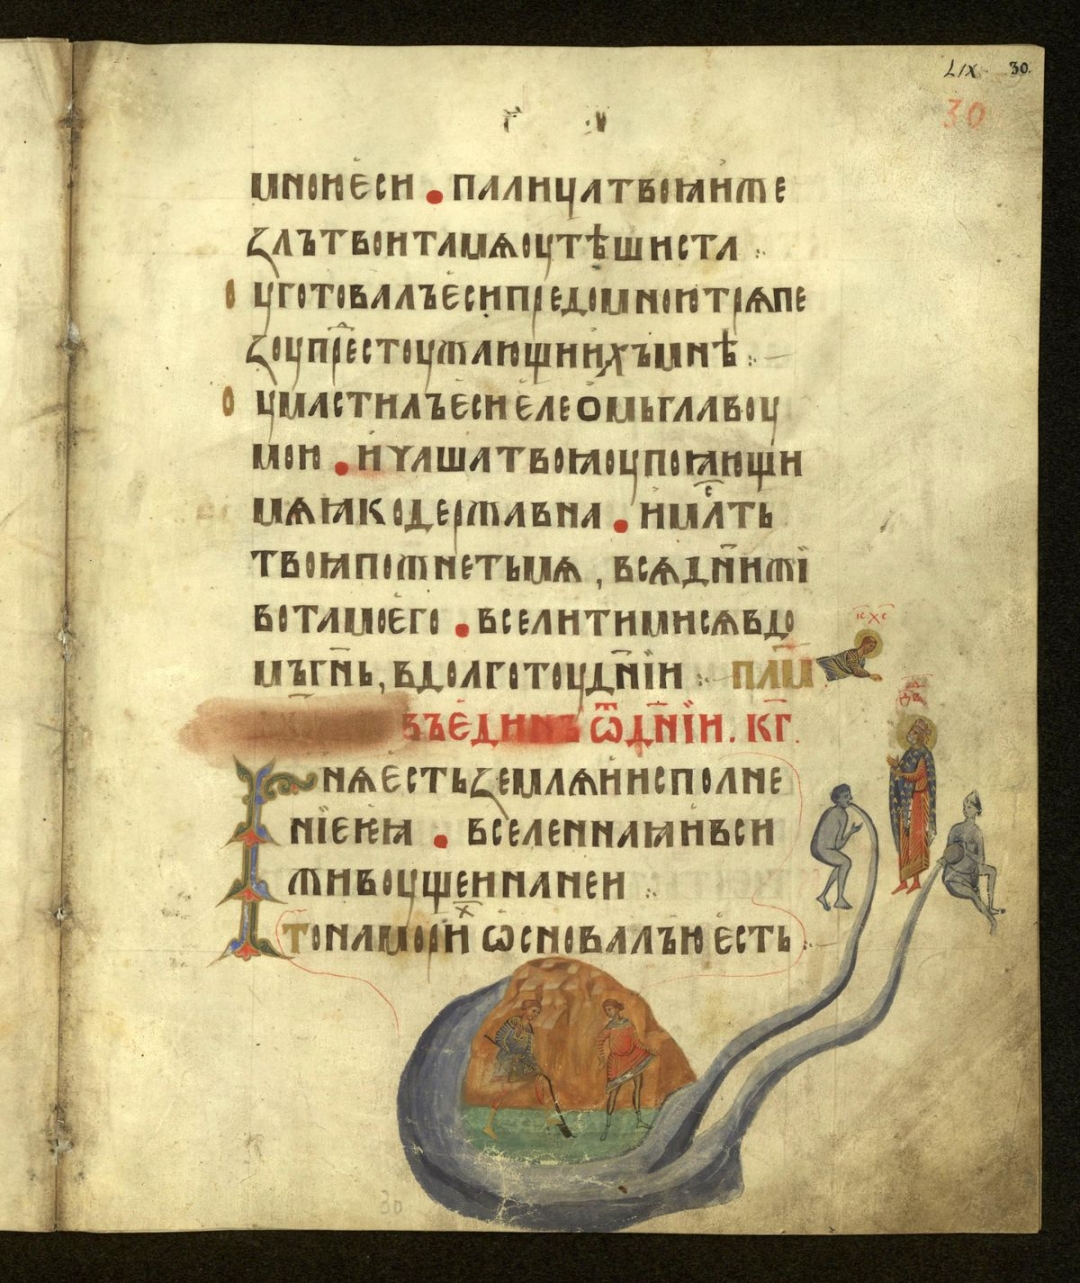 LIX 30.
30
мною҆ еси • палица твоꙗ и҆ же
ꙁлъ твои та мѧ оутѣшиста :·
уготовалъ еси предо мною трѧпе
ꙁоу пр҇естоужающиих҆ъ мнѣ :·
умастилъ еси елеомь главоу
мою • и҆ чаша твоꙗ оупоꙗющи
мѧ ꙗко державна • и҆ мл҇ть
твоꙗ поженеть мѧ , всѧ дн҃и жї
вота моего • вселити ми сѧ в до
мъ гн҃ь, в долготоу дн҃їи :· пл҃м
ІС ХС
въ единъ ѿ дн҃їи. кг҃.
Гнѧ есть ꙁемлѧ и исполне
нїе кꙗ • вселеннаꙗ и вьси
живоущеи на неи :·
тъ на морих ѡсновалъ ю есть :·
30